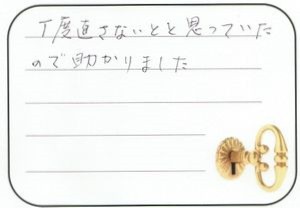 丁度直さないとと思っていた
ので助かりました